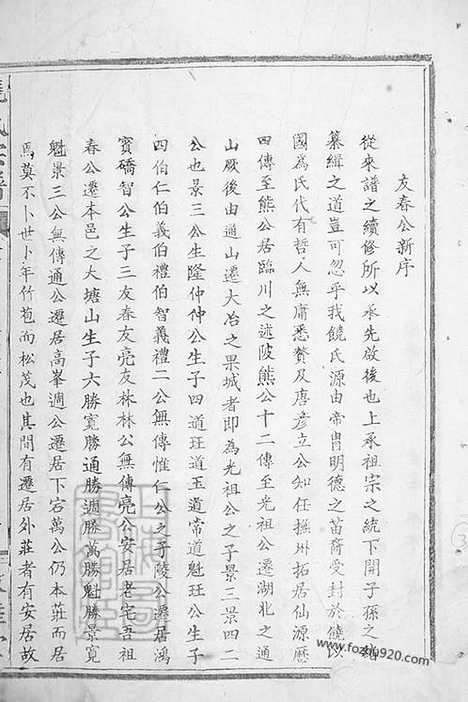 友春公新序
從來譜之續修所以承先啟後也上承祖宗之統下開子孫之緒
纂緝之道豈可忽乎我饒氏源由帝胄明德之苗裔受封於饒以
國為氏代有哲人無庸悉贊及唐彥立公知任撫州拓居仙源歷
四傳至熊公居臨川之述陂熊公十二傳至光祖公遷湖北之通
山厥後由通山遷大冶之果城者即為光祖公之子景三景四二
公也景三公生隆仲仲公生子四道珏道玉道常道魁珏公生子
四伯仁伯義伯禮伯智義禮二公無傳惟仁公之子陵公遷居鴻
賓礄智公生子三友春友亮友林林公無傳亮公安居老宅吾祖
春公遷本邑之大塘山生子六勝寬勝通勝週勝萬勝魁勝景寬
魁景三公無傳通公遷居高峯週公遷居下宕萬公仍本莊而居
焉莫不卜世卜年竹苞而松茂也其間有遷居外莊者有安居故
饒氏宗譜
www.fozhu920.com